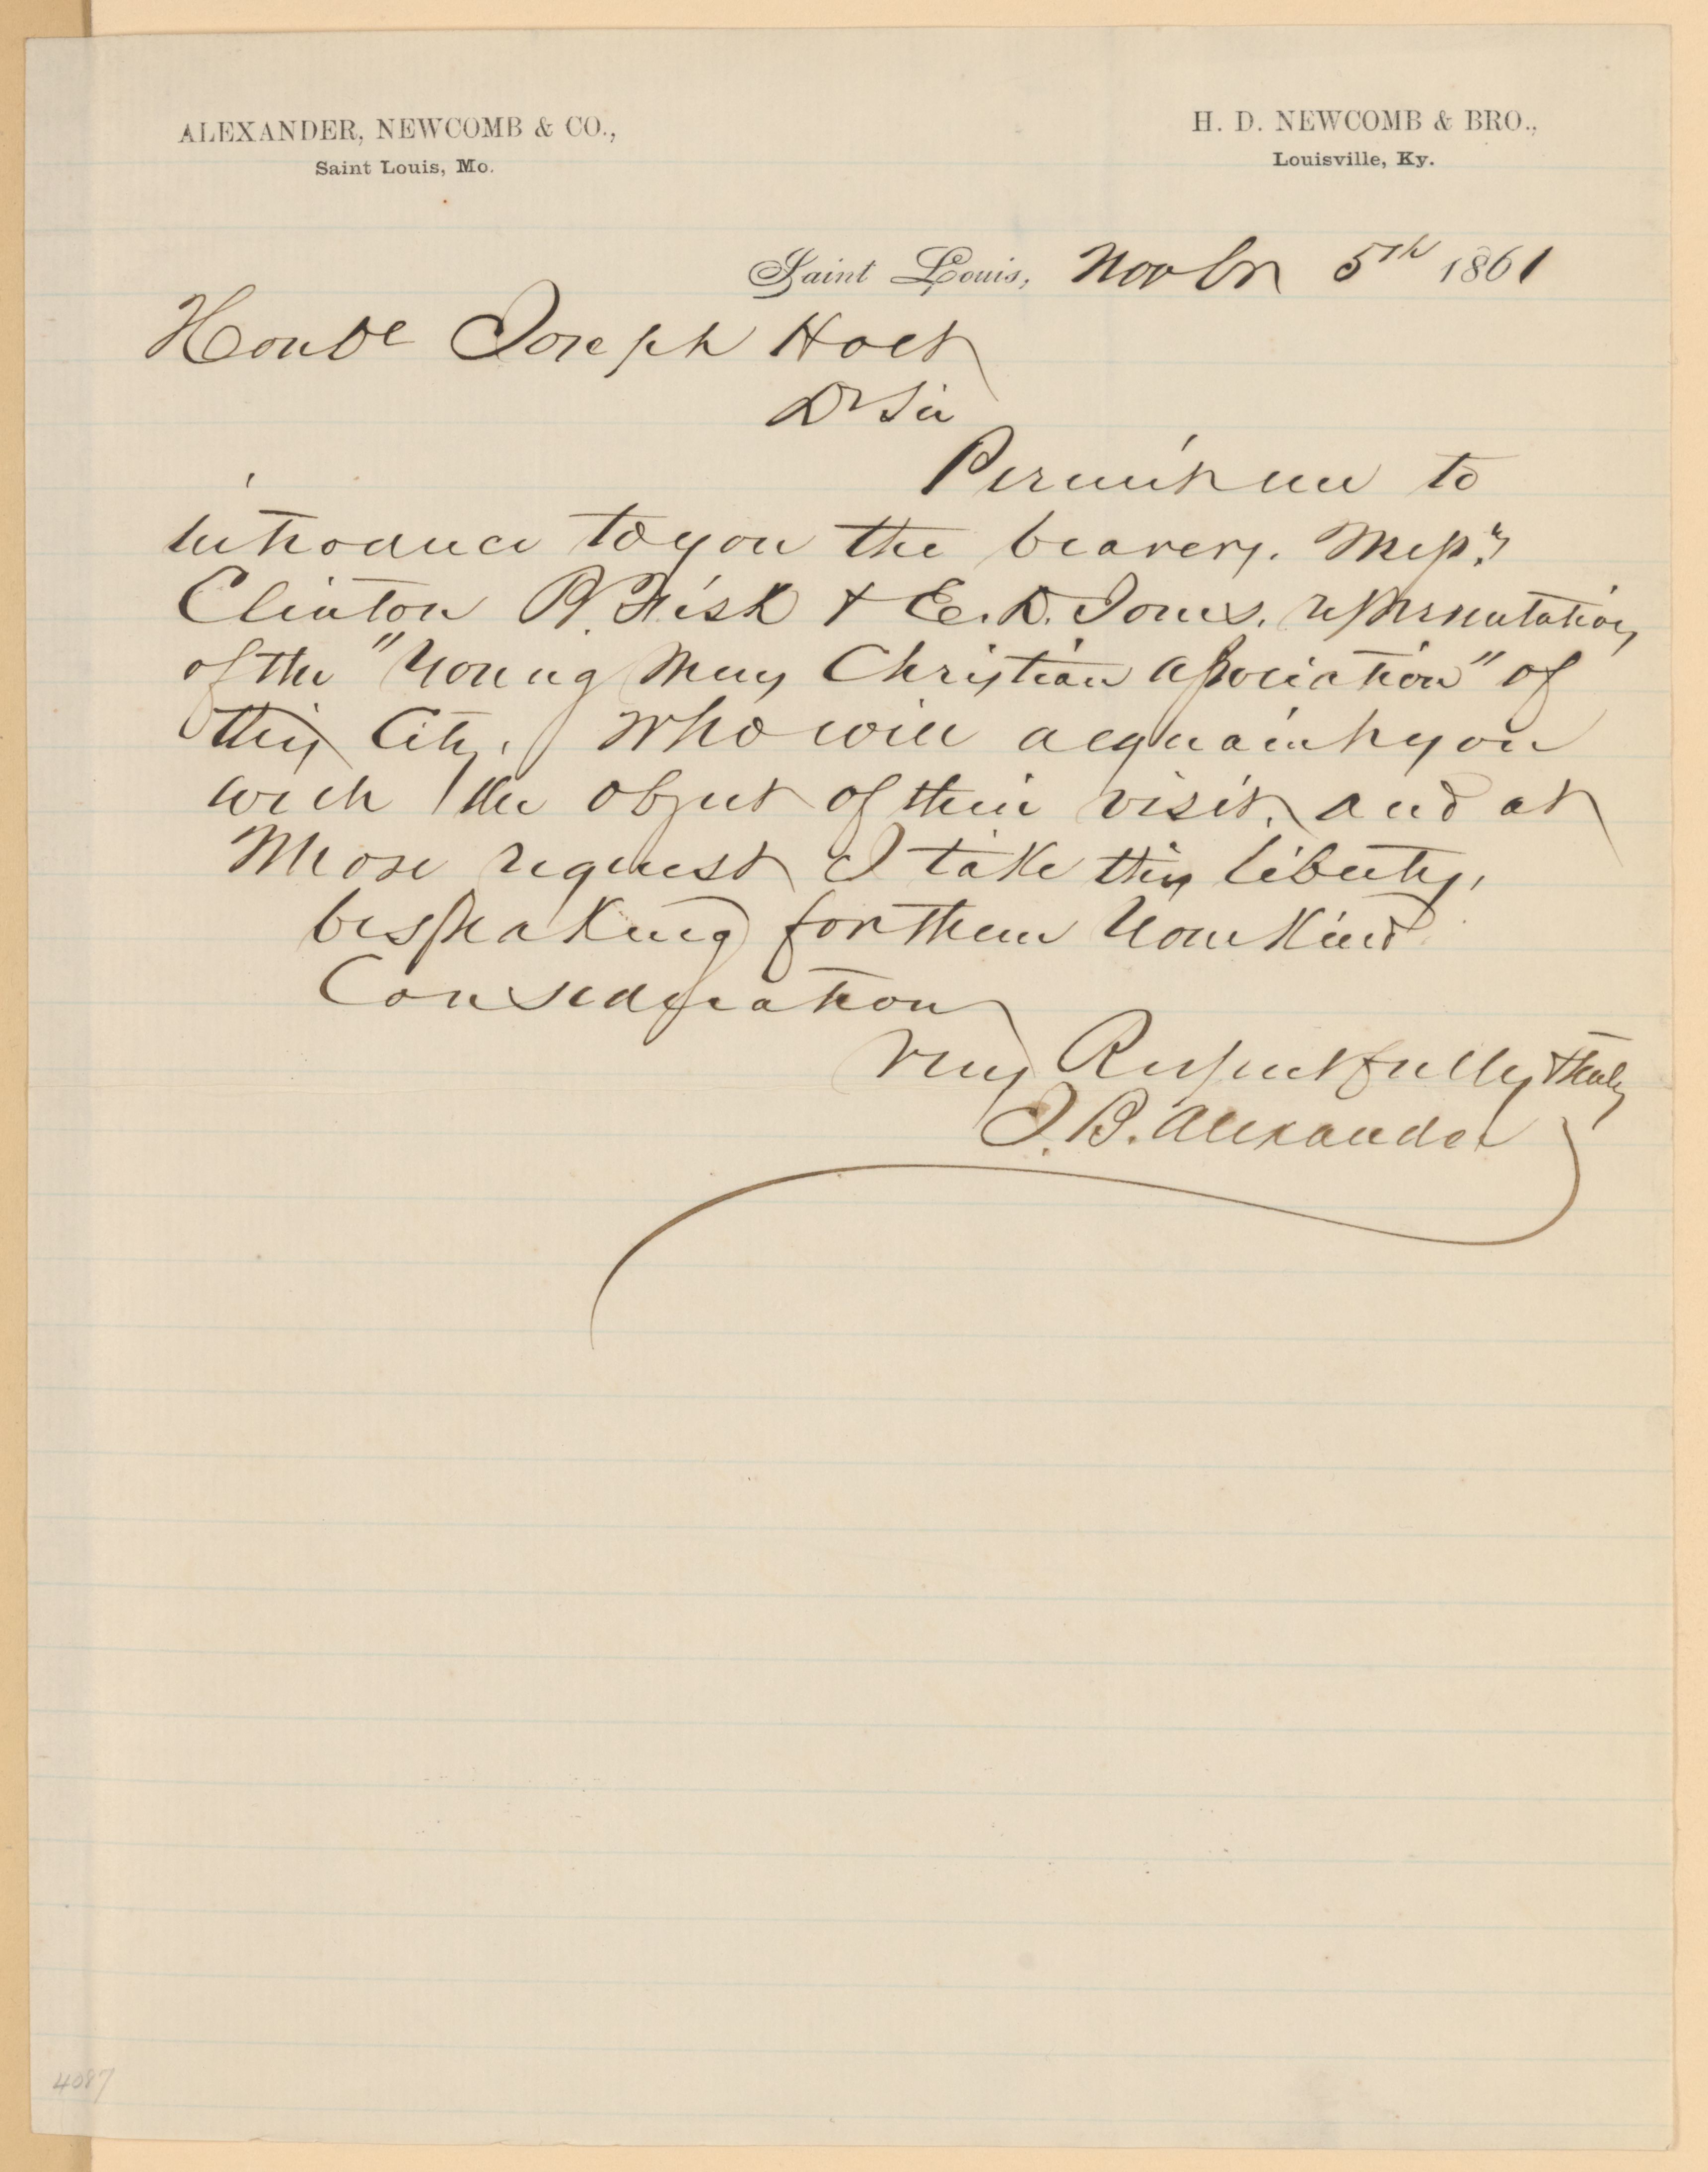 ALEXANDER, NEWCOMB & CO.,
Saint Louis, Mo.
H. D. NEWCOMB & BRO.,
Louisville, Ky.
Saint Louis, Novbr 5th 1861
Honble Joseph Holt
Dr Sir
Permit me to
introduce to you the bearers. Messrs
Clinton B. Fisk & E. D. Jones. representatives
of the "Young Mens Christian Association" of
this City. Who will acquaint you
with the object of their visit, and at
Whose request I take this liberty,
bespeaking for them Your Kind
Consideration
Very Respectfully & truly
J. B. Alexander
4087